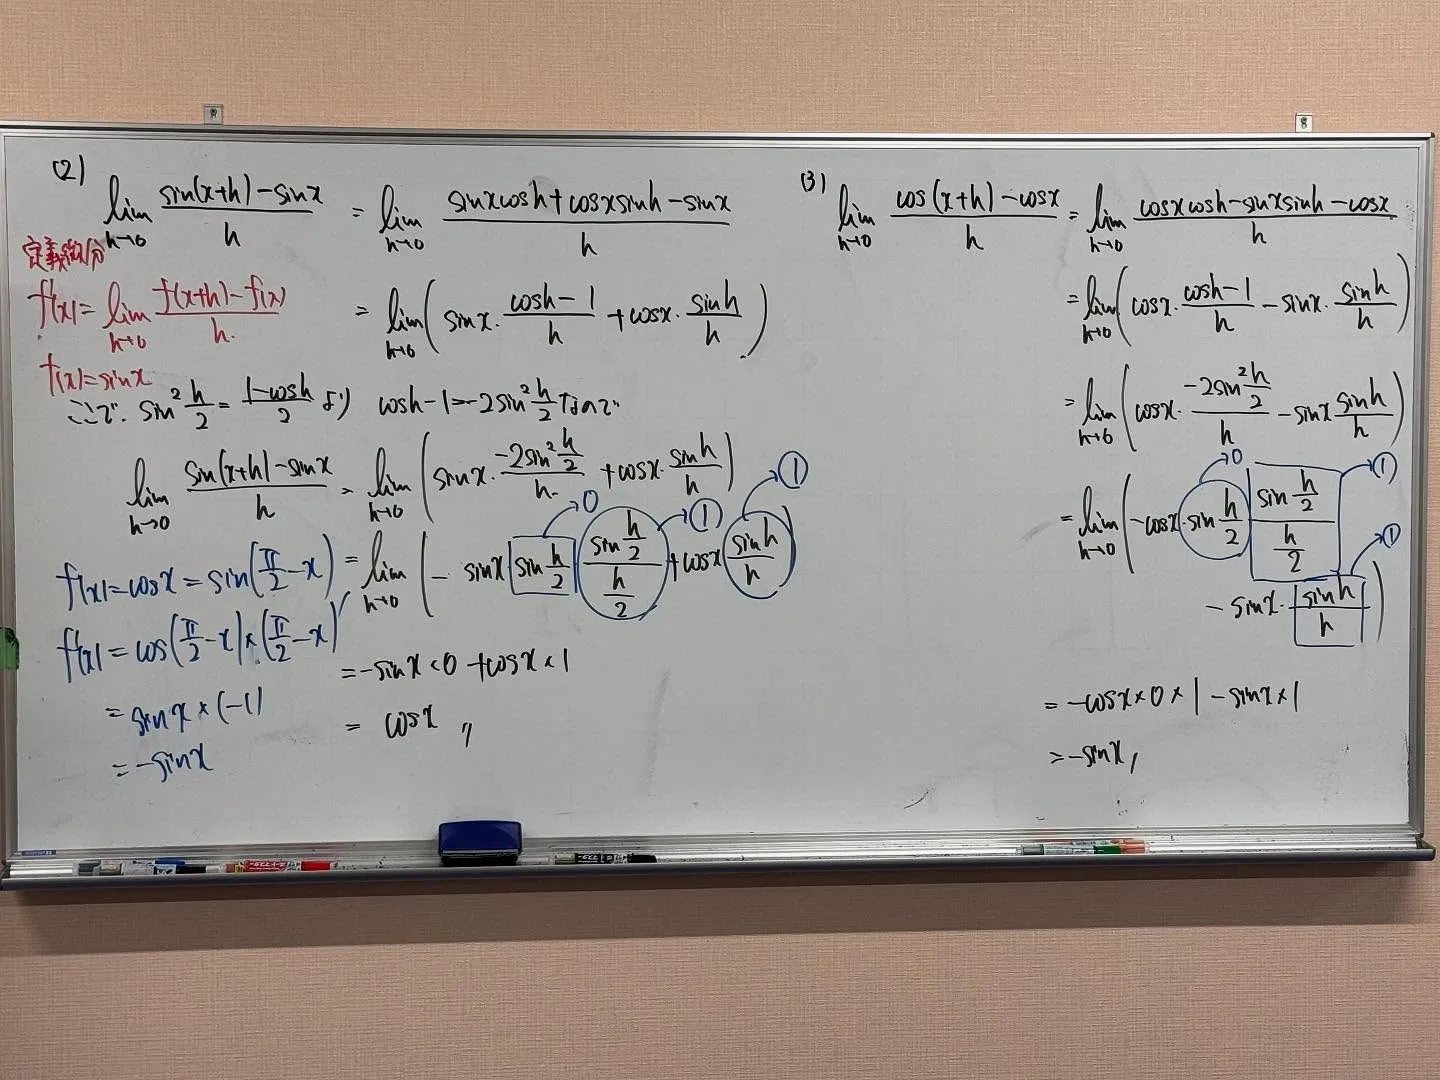 (2)
lim h→0 sin(x+h)-sinx / h = lim h→0 sinxcosh+cosxsinh-sinx / h
定義微分
f'(x)= lim h→0 f(x+h)-f(x) / h.
= lim h→0 ( sinx・cosh-1 / h +cosx・sinh / h )
f(x)=sinx
ここで、sin² h/2 = 1-cosh / 2 より cosh-1=-2sin² h/2 なので
lim h→0 sin(x+h)-sinx / h = lim h→0 ( sinx・-2sin² h/2 / h +cosx・sinh / h )
= lim h→0 ( - sinx sin h/2 sin h/2 / h/2 +cosx sinh / h )
0 ① ①
=-sinx×0+cosx×1
= cosx 〃
f(x)=cosx=sin(π/2-x)
f'(x)=cos(π/2-x)×(π/2-x)'
=sinx×(-1)
=-sinx
(3)
lim h→0 cos(x+h)-cosx / h = lim h→0 cosxcosh-sinxsinh-cosx / h
= lim h→0 ( cosx・cosh-1 / h -sinx・sinh / h )
= lim h→0 ( cosx・-2sin² h/2 / h -sinx sinh / h )
= lim h→0 ( -cosx・sin h/2 sin h/2 / h/2
0 ① ①
-sinx・sinh / h )
=-cosx×0×1-sinx×1
=-sinx,